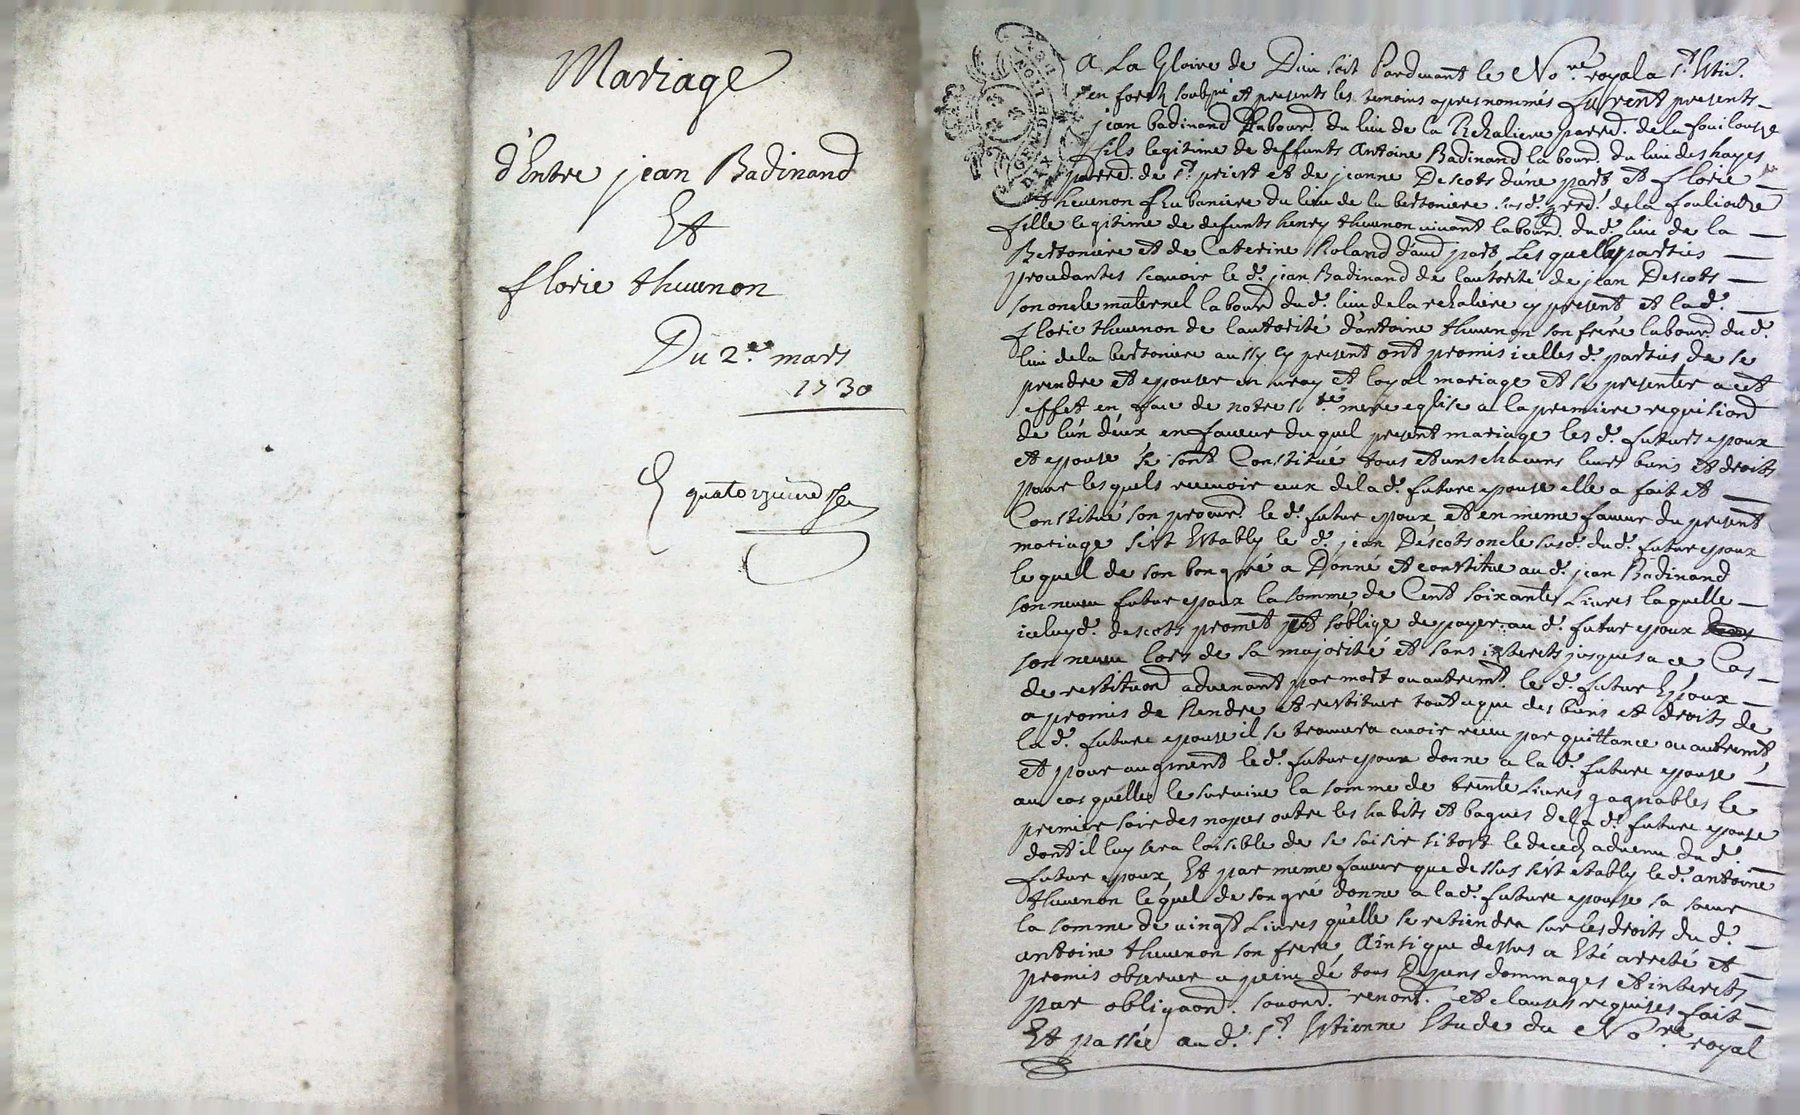 Mariage
d'Entre jean Badinand
Et
florie thevenon
Du 2.e mars
1730
A La Gloire de Dieu soit Pardevant le No.re royal a S.t Esti.
en forez soubz.né et presents les temoins apres nommés furent presents
jean badinand labour.r du lieu de la Rehaliere parr.d. de la fouilouse
fils legitime de deffunts Antoine Badinand labour.r du lieu des hayes
parr.d. de S.t priest et de jeanne Descots d'une part et florie
thevenon rubaniere du lieu de la bertoniere susd. parr.d. de la foulioúze
fille legitime de defunts henry thevenon vivant labour.r dud. lieu de la
Bertoniere et de Caterine Roland d'aud. part Lesquelles parties
procedantes scavoir le d. jean Badinand de l'autorité de jean Descots
son oncle maternel labour.r dud. lieu de la rehaliere cy present et la d.
florie thevenon de l'autorité d'antoine thevenon son frere labour.r du d.
lieu de la bertoniere aussy cy present ont promis icelles d. parties de se
prendre et epouser en vray et loyal mariage et se presenter a cet
effet en face de notre S.te mere eglise a la premiere requisiond
de l'un d'eux en faveur du quel present mariage les d. futurs epoux
et epouse se sont Constitué tous et uns chacuns leurs biens et droits
pour lesquels recevoir ceux de la d. future epouse elle a fait et
Constitué son procur.r le d. futur epoux et en meme faveur du present
mariage s'est Estably le d. jean Descots oncle susd. dud. futur epoux
le quel de son bon gré a Donné et constitué au d. jean Badinand
son neveu futur epoux la somme de Cent soixante Livres laquelle
iceluy d. descots promet et s'oblige de payer au d. futur epoux
son neveu lors de sa majorité et sans interets jusques a ce Cas
de restitu.ond advenant par mort ou autrem.t le d. futur Epoux
a promis de Rendre et restituer tout ce que des biens et droits de
la d. future epouse il se trouvera avoir receu par quittance ou autrem.t
et pour augment le d. futur epoux donne a la d. future epouse
au cas qu'elle le survive la somme de trente Livres gagnables le
premier soir des nopces outre les habits et bagues de la d. future epouse
dont il luy sera loisible de se saisir sitost le deced advenu du d.
futur epoux Et par meme faveur que dessus s'est etably le d. antoine
thevenon lequel de son gré donne a la d. future epouse sa soeur
la somme de vingt Livres qu'elle se retiendra sur les droits du d.
antoine thevenon son frere Ainsi que dessus a Eté arreté et
promis observer a peine de tous Depens dommages et interets
par obligaond. soumd. renond. et clauses requises fait
Et passée au d. S.t Estienne Etude du No.re royal